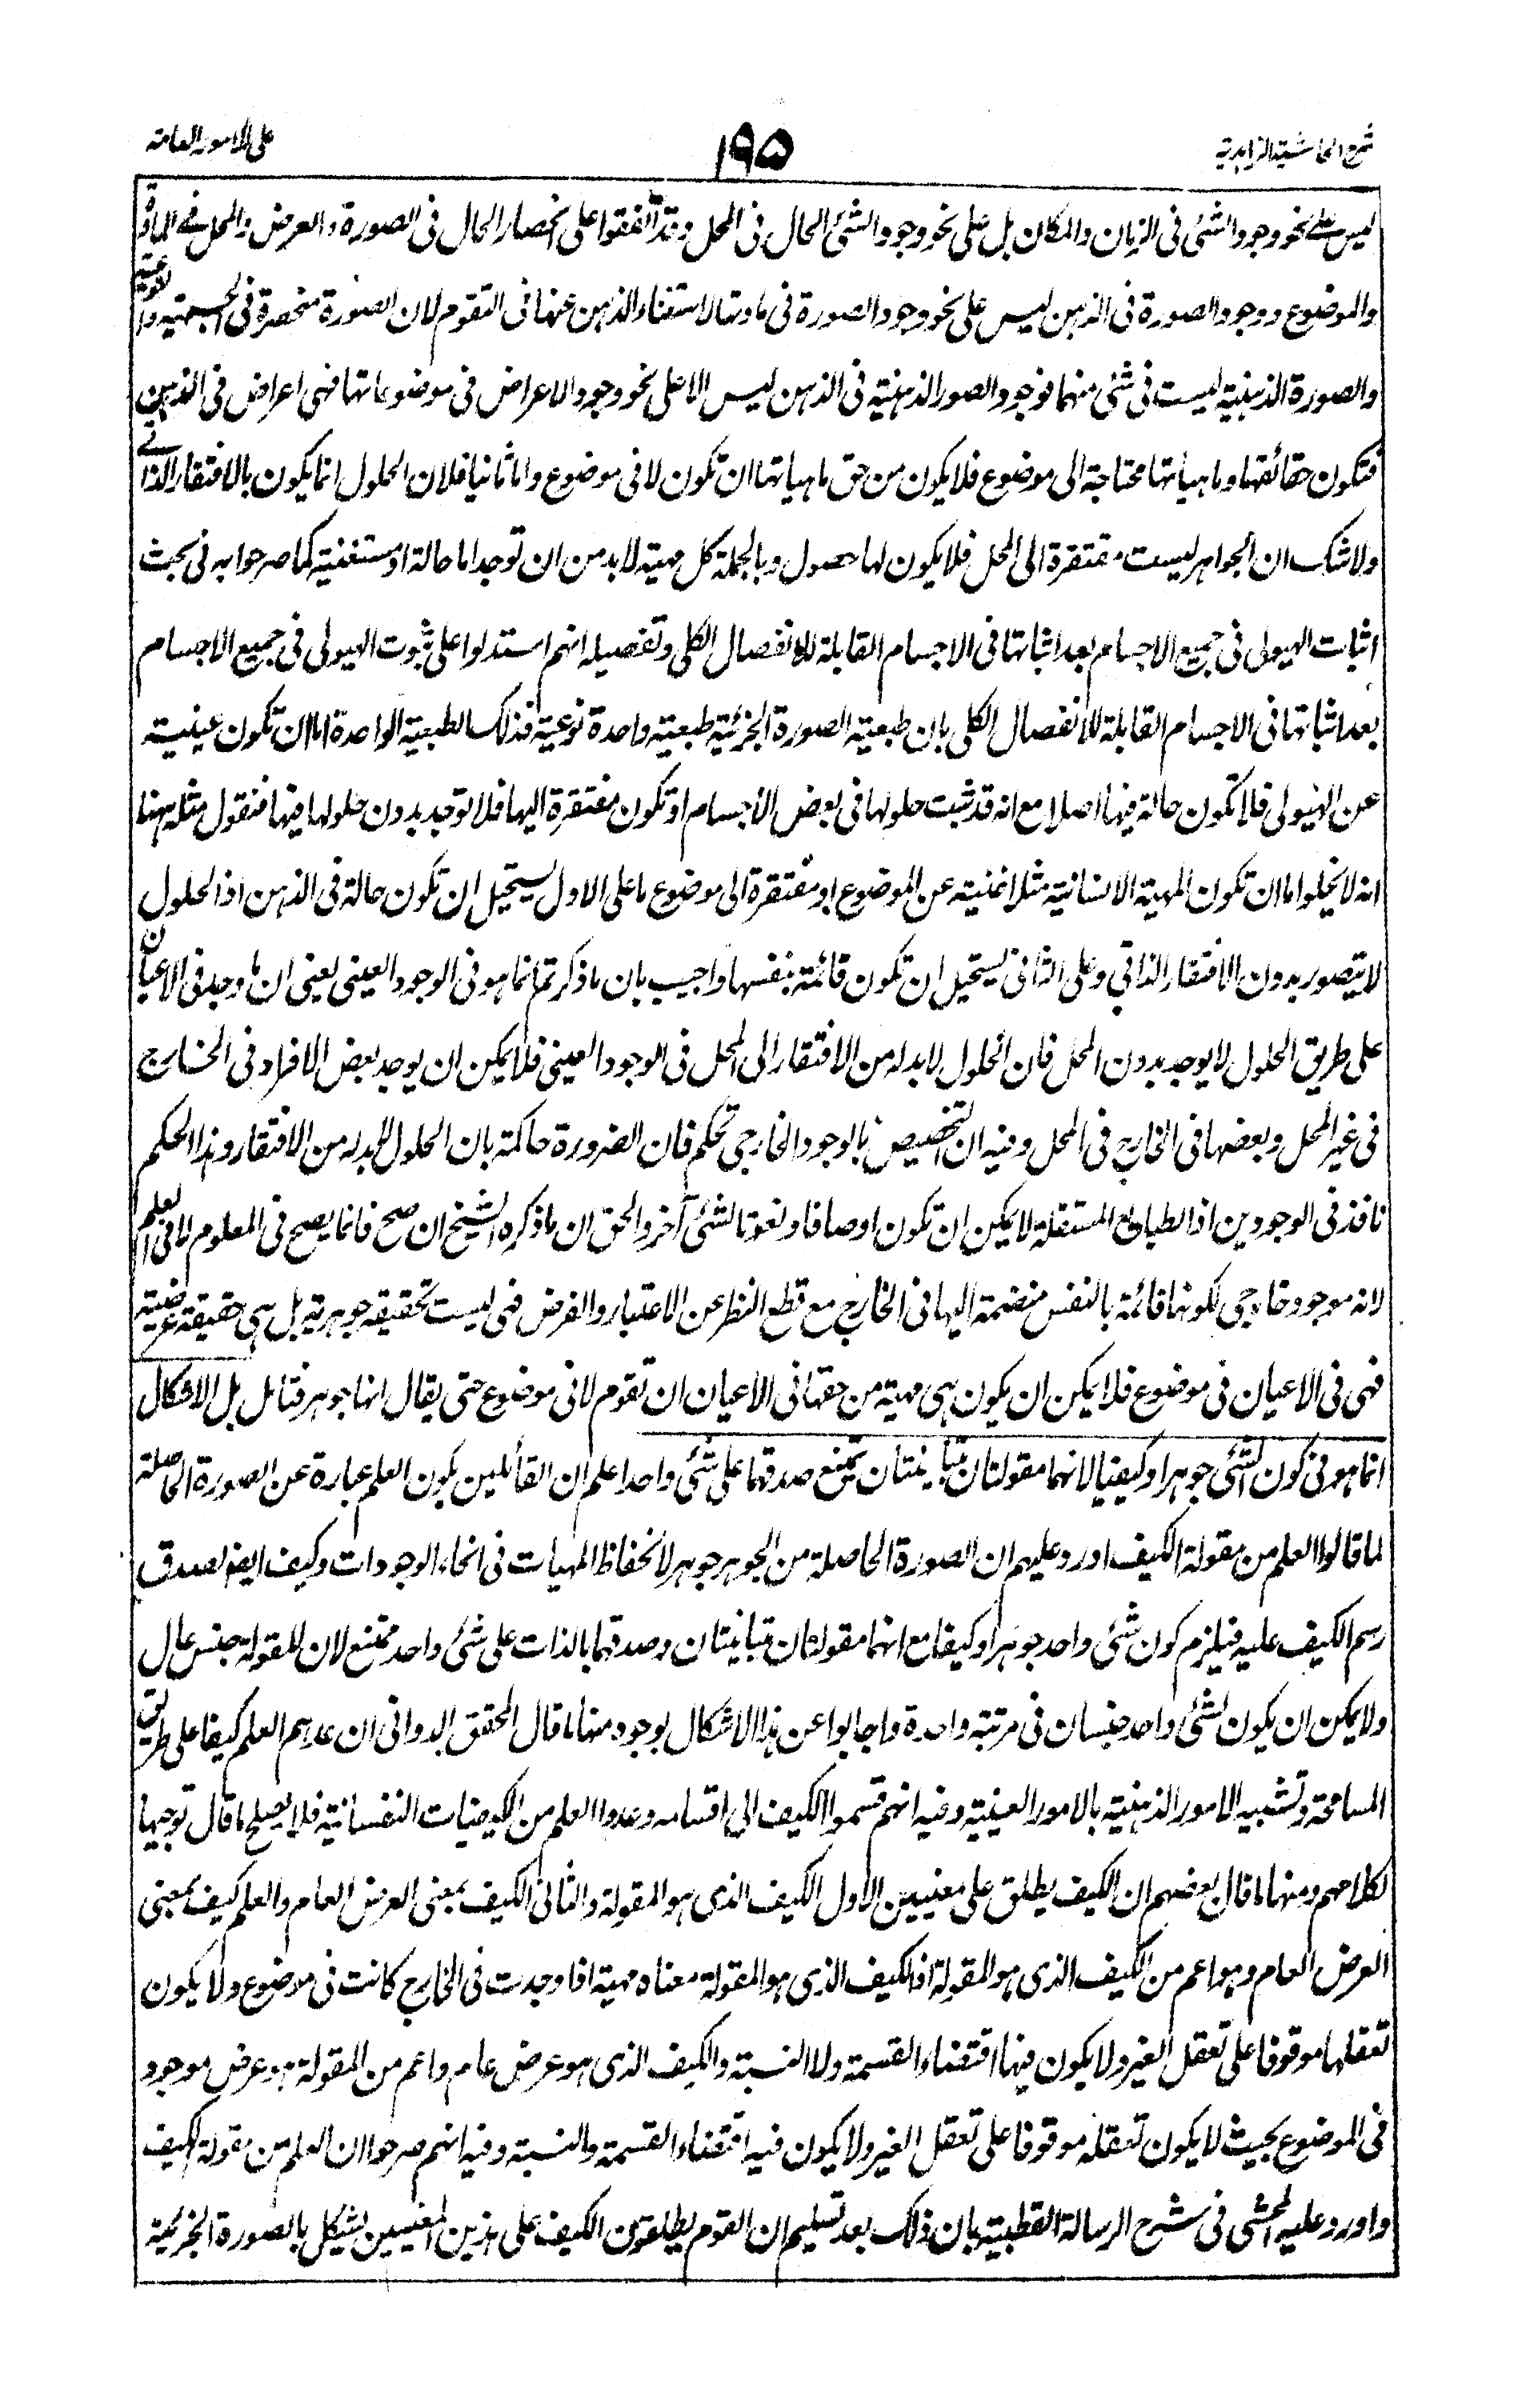 شرح الحاشية الزاهدية
١٩٥
على الامور العامة
ليس على نحو وجود الشئ فى الزمان والمكان بل على نحو وجود الشئ الحال فى المحل وقد اتفقوا على انحصار الحال فى الصورة والعرض والمحل فى المادة
والموضوع ووجود الصورة فى الذهن ليس على نحو وجود الصورة فى مادتها لاستغناء الذهن عنها فى التقوم لان الصورة منحصرة فى الجسمية والنوعية
والصورة الذهنية ليست فى شئ منهما فوجود الصور الذهنية فى الذهن ليس الا على نحو وجود الاعراض فى موضوعاتها فهى اعراض فى الذهن
فتكون حقائقها وماهياتها محتاجة الى موضوع فلا يكون من حق ماهياتها ان تكون لا فى موضوع واما ثانيا فلان الحلول انما يكون بالافتقار الذاتى
ولا شك ان الجواهر ليست مفتقرة الى المحل فلا يكون لها حصول وبالجملة كل مهية لا بد من ان توجد اما حالة او مستغنية كما صرحوا به فى بحث
اثبات الهيولى فى جميع الاجسام بعد اثباتها فى الاجسام القابلة للانفصال الكلى وتفصيله انهم استدلوا على ثبوت الهيولى فى جميع الاجسام
بعد اثباتها فى الاجسام القابلة للانفصال الكلى بان طبعية الصورة الجزئية طبعية واحدة نوعية فذلك الطبعية الواحدة اما ان تكون عينية
عن الهيولى فلا تكون حالة فيها اصلا مع انه قد ثبت حلولها فى بعض الاجسام او تكون مفتقرة اليها فلا توجد بدون حلولها فيها فنقول مثله ههنا
انه لا يخلوا ما ان تكون المهية الانسانية مثلا غنية عن الموضوع او مفتقرة الى موضوع ما على الاول يستحيل ان تكون حالة فى الذهن اذ الحلول
لا يتصور بدون الافتقار الذاتى وعلى الثانى يستحيل ان تكون قائمة بنفسها واجيب بان ما ذكرتم انما هو فى الوجود العينى يعنى ان ما وجد فى الاعيان
على طريق الحلول لا يوجد بدون المحل فان الحلول لا بد له من الافتقار الى المحل فى الوجود العينى فلا يمكن ان يوجد بعض الافراد فى الخارج
فى غير المحل وبعضها فى الخارج فى المحل وفيه ان التخصيص بالوجود الخارجى تحكم فان الضرورة حاكمة بان الحلول لا بد له من الافتقار وهذا الحكم
نافذ فى الوجودين اذ الطبائع المستقلة لا يمكن ان تكون اوصافا ونعوتا لشئ آخر والحق ان ما ذكره الشيخ ان صح فانما يصح فى المعلوم لا فى العلم
لانه موجود خارجى لكونها قائمة بالنفس منضمة اليها فى الخارج مع قطع النظر عن الاعتبار والفرض فهى ليست تحقيقه جوهرية بل هى حقيقة عرضية
فهى فى الاعيان فى موضوع فلا يمكن ان يكون هى مهية من حقها فى الاعيان ان تقوم لا فى موضوع حتى يقال انها جوهر فتأمل بل الاشكال
انما هو فى كون الشئ جوهرا وكيفيا لانهما مقولتان متباينتان يمتنع صدقهما على شئ واحد اعلم ان القائلين بكون العلم عبارة عن الصورة الحاصلة
لما قالوا العلم من مقولة الكيف اورد عليهم ان الصورة الحاصلة من الجوهر جوهر لانحفاظ المهيات فى انحاء الوجودات وكيف ايضا لصدق
رسم الكيف عليه فيلزم كون شئ واحد جوهرا وكيفا مع انهما مقولتان متباينتان وصدقهما بالذات على شئ واحد ممتنع لان للمقولة جنس عال
ولا يمكن ان يكون لشئ واحد جنسان فى مرتبة واحدة واجابوا عن هذا الاشكال بوجوه منها ما قال المحقق الدوانى ان عدهم العلم كيفا على طريق
المسامحة وتشبيه الامور الذهنية بالامور العينية وفيه انهم قسموا الكيف الى اقسامه وعدوا العلم من الكيفيات النفسانية فلا يصلح ما قال توجيها
لكلامهم ومنها ما قال بعضهم ان الكيف يطلق على معنيين الاول الكيف الذى هو المقولة والثانى الكيف بمعنى العرض العام والعلم كيف بمعنى
العرض العام وهو اعم من الكيف الذى هو المقولة اذ الكيف الذى هو المقولة معناه مهية اذا وجدت فى الخارج كانت فى موضوع ولا يكون
تعقلها موقوفا على تعقل الغير ولا يكون فيها اقتضاء القسمة ولا النسبة والكيف الذى هو عرض عام واعم من المقولة هو عرض موجود
فى الموضوع بحيث لا يكون تعقله موقوفا على تعقل الغير ولا يكون فيه اقتضاء القسمة والنسبة وفيه انهم صرحوا ان العلم من مقولة الكيف
واورد عليه المحشى فى شرح الرسالة القطبية بان ذلك بعد تسليم ان القوم يطلقون الكيف على هذين المعنيين يشكل بالصورة الجزئية